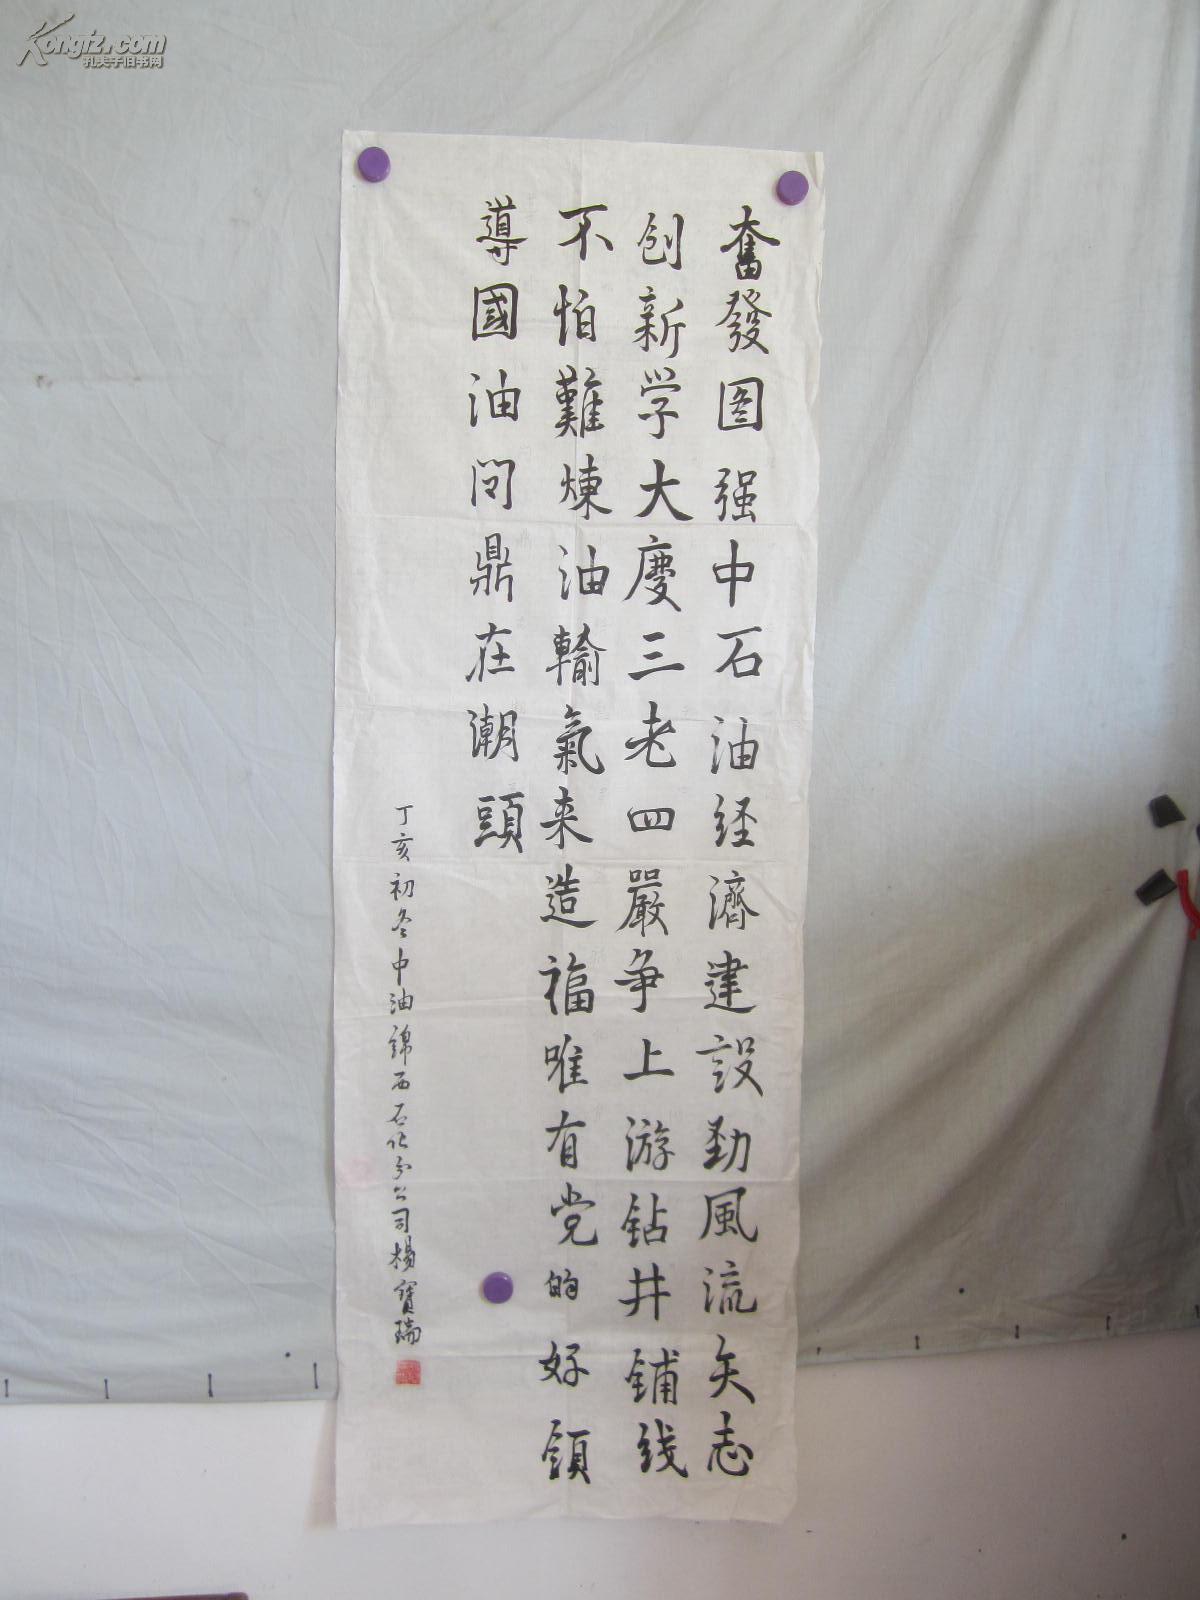 奮發图强中石油経濟建設勁風流矢志
创新学大慶三老四嚴争上游钻井铺线
不怕難煉油輸氣来造福唯有党的好領
導國油问鼎在潮頭
丁亥初冬中油錦西石化分公司楊寶瑞
Kongfz.com
孔夫子旧书网